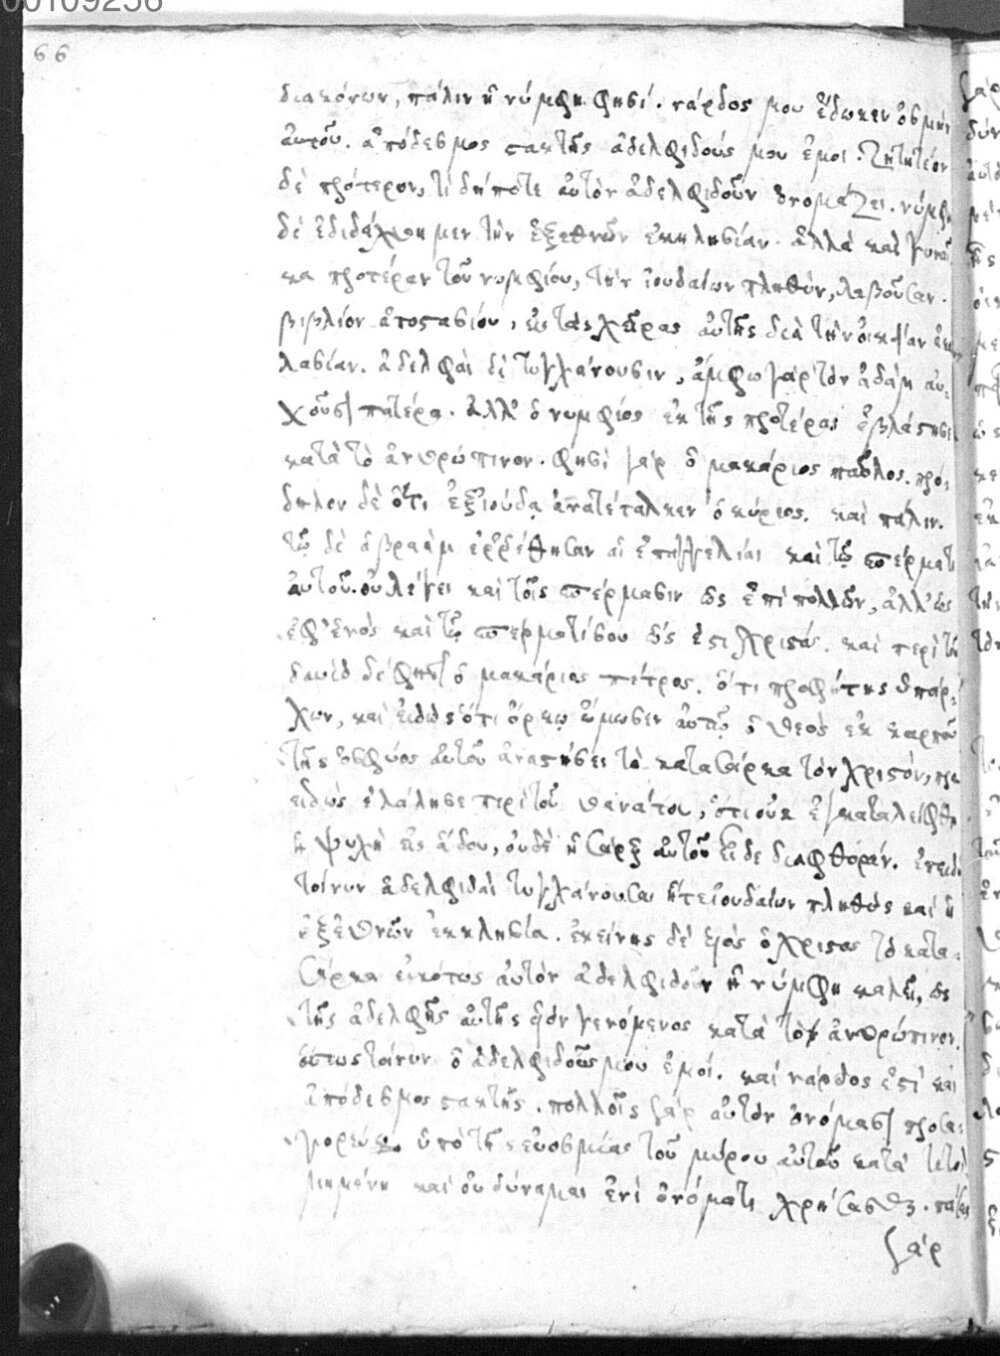 00109256
66
διακόνων, πάλιν ἡ νύμφη φησί. νάρδος μου ἔδωκεν ὀσμὴν
αὐτοῦ. ἀπόδεσμος στακτῆς ἀδελφιδούς μου ἐμοι. ζητητέον
δὲ πρότερον, τί δήποτε αὐτὸν ἀδελφιδοῦν ὀνομάζει. νύμφη
δὲ ἐδιδάχθημεν τὴν ἐξ ἐθνῶν ἐκκλησίαν. ἀλλὰ καὶ γυναῖ
κα προτέραν τοῦ νυμφίου, τὴν ἰουδαίων πληθὺν, λαβοῦσαν
βιβλίον ἀποστασίου, εἰς τὰς χεῖρας αὐτῆς διὰ τὴν οἰκείαν ἀκο
λασίαν. ἀδελφαὶ δὲ τυγχάνουσιν, ἄμφω γὰρ τὸν ἀδὰμ αὐ
χοῦσι πατέρα. ἀλλ' ὁ νυμφίος ἐκ τῆς προτέρας ἐβλάστησε
κατὰ τὸ ἀνθρώπινον. φησὶ γάρ ὁ μακάριος παῦλος. πρό
δηλον δὲ ὅτι ἐξ ἰούδα ἀνατέταλκεν ὁ κύριος. καὶ πάλιν.
τῷ δὲ ἀβραὰμ ἐρρέθησαν αἱ ἐπαγγελίαι καὶ τῷ σπέρματι
αὐτοῦ. οὐ λέγει καὶ τοῖς σπέρμασιν ὡς ἐπὶ πολλῶν, ἀλλ' ὡς
ἐφ' ἑνὸς καὶ τῷ σπέρματί σου ὅς ἐστι χριστός. καὶ περὶ τοῦ
δαυὶδ δέ φησι ὁ μακάριος πέτρος. ὅτι προφήτης ὑπάρ
χων, καὶ εἰδὼς ὅτι ὅρκῳ ὤμοσεν αὐτῷ ὁ θεὸς ἐκ καρποῦ
τῆς ὀσφύος αὐτοῦ ἀναστήσει τὸ κατα σάρκα τὸν χριστόν,
ειδὼς ἐλάλησε περὶ τοῦ θανάτου, ὅτι οὐκ ἐγκαταλείφθη
ἡ ψυχὴ εἰς ἅδου, οὐδὲ ἡ σάρξ αὐτοῦ εἶδε διαφθοράν. ἐπειδὴ
τοίνυν ἀδελφιδαὶ τυγχάνουσαι ἥτε ἰουδαίων πληθὺς καὶ ἡ
ἐξ ἐθνῶν ἐκκλησία. ἐκείνης δὲ υἱὸς ὁ χριστὸς τὸ κατα
σάρκα εἰκότως αὐτὸν ἀδελφιδοῦν ἡ νύμφη καλεῖ, ὡς
τῆς ἀδελφῆς αὐτῆς υἱὸν γενόμενος κατὰ τὸ ἀνθρώπινον.
οὕτως τοίνυν ὁ ἀδελφιδοῦς μου ἐμοί. καὶ νάρδος ἐστὶ καὶ
ἀπόδεσμος στακτῆς. πολλοῖς γὰρ αὐτὸν ὀνόμασι προσα
γορεύω ὑπὸ τῆς εὐοσμίας τοῦ μύρου αὐτοῦ κατὰ
καὶ οὐ δύναμαι ἑνὶ ὀνόματι χρήσασθαι.
γάρ